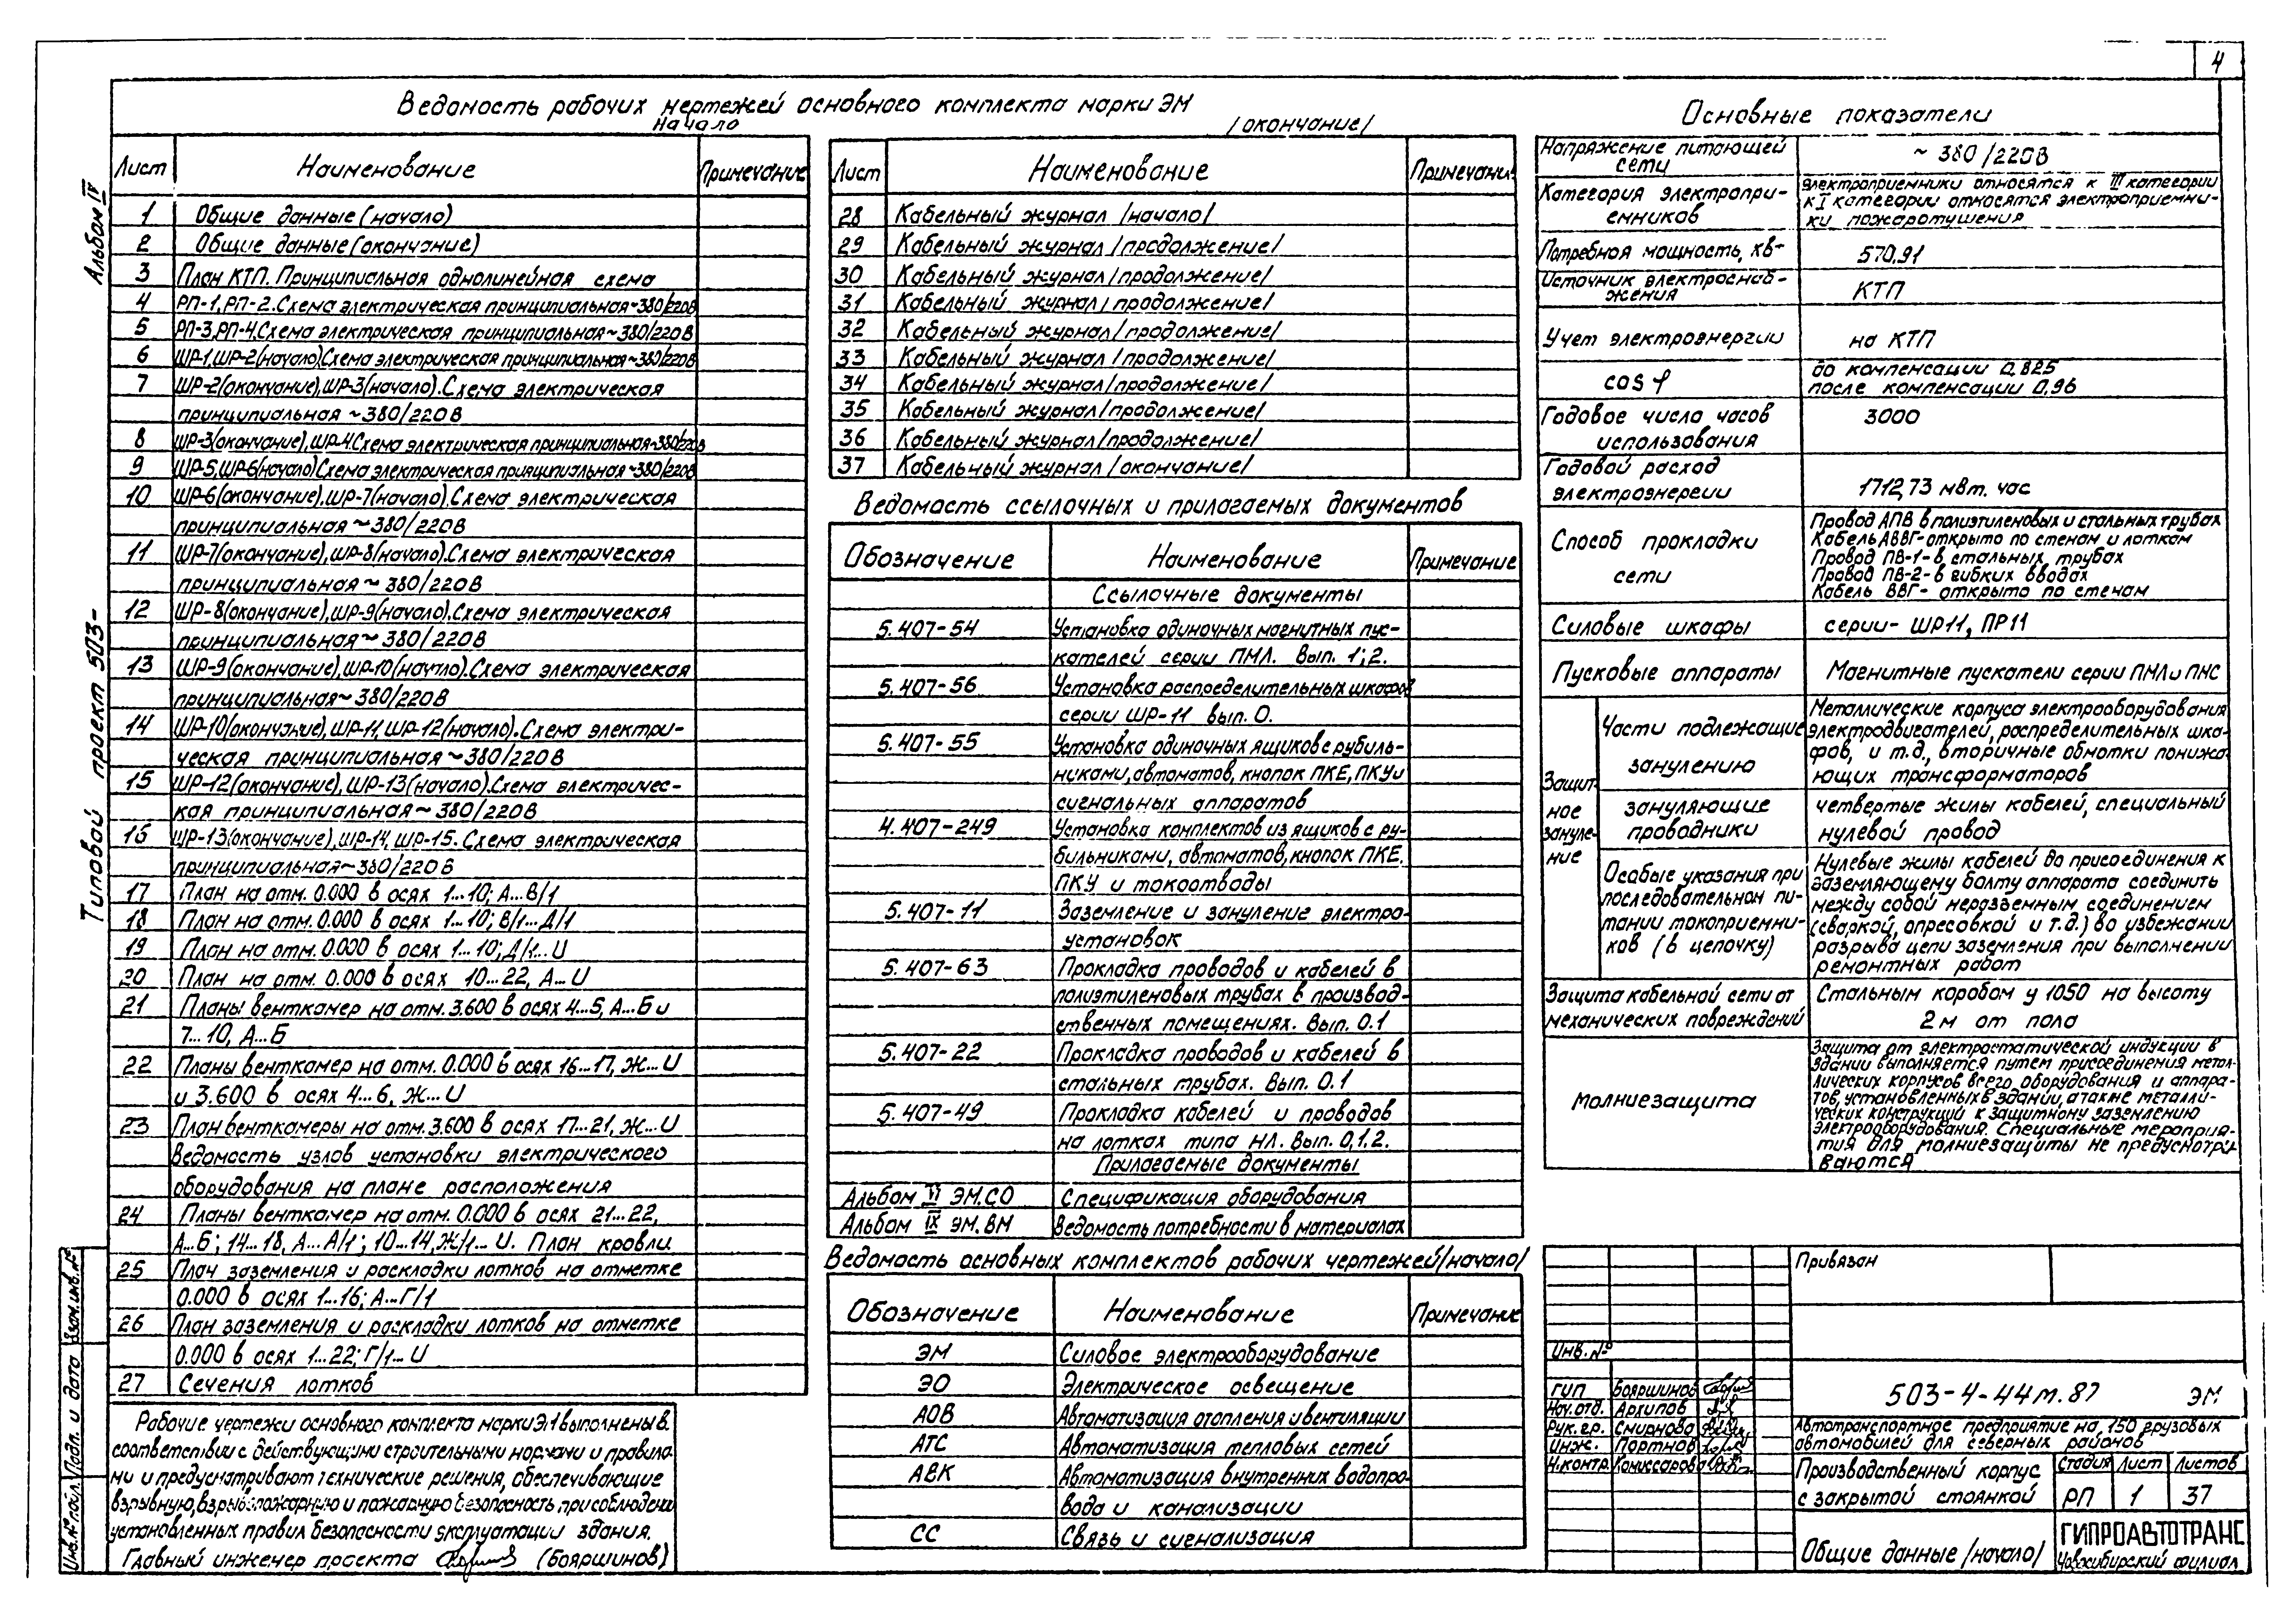 4
Альбом IV
Типовой проект 503-
Ведомость рабочих чертежей основного комплекта марки ЭМ
начало
/окончание/
Лист Наименование Примечание
1 Общие данные (начало)
2 Общие данные (окончание)
3 План КТП. Принципиальная однолинейная схема
4 РП-1, РП-2. Схема электрическая принципиальная ~380/220В
5 РП-3, РП-4. Схема электрическая принципиальная ~380/220В
6 ШР-1, ШР-2 (начало). Схема электрическая принципиальная ~380/220В
7 ШР-2 (окончание), ШР-3 (начало). Схема электрическая
принципиальная ~380/220В
8 ШР-3 (окончание), ШР-4. Схема электрическая принципиальная ~380/220В
9 ШР-5, ШР-6 (начало). Схема электрическая принципиальная ~380/220В
10 ШР-6 (окончание), ШР-7 (начало). Схема электрическая
принципиальная ~380/220В
11 ШР-7 (окончание), ШР-8 (начало). Схема электрическая
принципиальная ~380/220В
12 ШР-8 (окончание), ШР-9 (начало). Схема электрическая
принципиальная ~380/220В
13 ШР-9 (окончание), ШР-10 (начало). Схема электрическая
принципиальная ~380/220В
14 ШР-10 (окончание), ШР-11, ШР-12 (начало). Схема электри-
ческая принципиальная ~380/220В
15 ШР-12 (окончание), ШР-13 (начало). Схема электричес-
кая принципиальная ~380/220В
16 ШР-13 (окончание), ШР-14, ШР-15. Схема электрическая
принципиальная ~380/220В
17 План на отм. 0.000 в осях 1...10; А...В/1
18 План на отм. 0.000 в осях 1...10; В/1...Д/1
19 План на отм. 0.000 в осях 1...10; Д/1...И
20 План на отм. 0.000 в осях 10...22, А...И
21 Планы венткамер на отм. 3.600 в осях 4...5, А...Б и
7...10, А...Б
22 Планы венткамер на отм. 0.000 в осях 16...17, Ж...И
и 3.600 в осях 4...6, Ж...И
23 План венткамеры на отм. 3.600 в осях 17...21, Ж...И
Ведомость узлов установки электрического
оборудования на плане расположения
24 Планы венткамер на отм. 0.000 в осях 21...22,
А...Б; 14...18, А...А/1; 10...14, Ж/1...И. План кровли
25 План заземления и раскладки лотков на отметке
0.000 в осях 1...16; А...Г/1
26 План заземления и раскладки лотков на отметке
0.000 в осях 1...22; Г/1...И
27 Сечения лотков
Рабочие чертежи основного комплекта марки ЭМ выполнены в
соответствии с действующими строительными нормами и правила-
ми и предусматривают технические решения, обеспечивающие
взрывную, взрывопожарную и пожарную безопасность при соблюдении
установленных правил безопасности эксплуатации здания.
Главный инженер проекта (Бояршинов)
Инв. № подл. Подп. и дата Взам. инв. №
Лист Наименование Примечание
28 Кабельный журнал /начало/
29 Кабельный журнал /продолжение/
30 Кабельный журнал /продолжение/
31 Кабельный журнал /продолжение/
32 Кабельный журнал /продолжение/
33 Кабельный журнал /продолжение/
34 Кабельный журнал /продолжение/
35 Кабельный журнал /продолжение/
36 Кабельный журнал /продолжение/
37 Кабельный журнал /окончание/
Ведомость ссылочных и прилагаемых документов
Обозначение Наименование Примечание
Ссылочные документы
5.407-54 Установка одиночных магнитных пус-
кателей серии ПМЛ. Вып. 1; 2.
5.407-56 Установка распределительных шкафов
серии ШР-11 вып. 0.
5.407-55 Установка одиночных ящиков с рубиль-
никами, автоматов, кнопок ПКЕ, ПКУ и
сигнальных аппаратов
4.407-249 Установка комплектов из ящиков с ру-
бильниками, автоматов, кнопок ПКЕ,
ПКУ и токоотводы
5.407-11 Заземление и зануление электро-
установок
5.407-63 Прокладка проводов и кабелей в
полиэтиленовых трубах в производ-
ственных помещениях. Вып. 0.1
5.407-22 Прокладка проводов и кабелей в
стальных трубах. Вып. 0.1
5.407-49 Прокладка кабелей и проводов
на лотках типа НЛ. Вып. 0,1.2.
Прилагаемые документы
Альбом VI ЭМ.СО Спецификация оборудования
Альбом IX ЭМ.ВМ Ведомость потребности в материалах
Ведомость основных комплектов рабочих чертежей /начало/
Обозначение Наименование Примечание
ЭМ Силовое электрооборудование
ЭО Электрическое освещение
АОВ Автоматизация отопления и вентиляции
АТС Автоматизация тепловых сетей
АВК Автоматизация внутренних водопро-
вода и канализации
СС Связь и сигнализация
Основные показатели
Напряжение питающей сети ~ 380/220В
Категория электропри-
емников
электроприемники относятся к III категории
к I категории относятся электроприемни-
ки пожаротушения
Потребная мощность, кВт 570,91
Источник электроснаб-
жения КТП
Учет электроэнергии на КТП
cos φ до компенсации 0,825
после компенсации 0,96
Годовое число часов
использования 3000
Годовой расход
электроэнергии 1712,73 мвт. час
Способ прокладки
сети
Провод АПВ в полиэтиленовых и стальных трубах
Кабель АВВГ-открыто по стенам и лоткам
Провод ПВ-1-в стальных трубах
Провод ПВ-2-в гибких вводах
Кабель ВВГ- открыто по стенам
Силовые шкафы серии- ШР11, ПР11
Пусковые аппараты Магнитные пускатели серии ПМЛ и ПНС
Защит-
ное
зануле-
ние
Части подлежащие
занулению
Металлические корпуса электрооборудования
электродвигателей, распределительных шка-
фов, и т.д., вторичные обмотки понижа-
ющих трансформаторов
зануляющие
проводники
четвертые жилы кабелей, специальный
нулевой провод
Особые указания при
последовательном пи-
тании токоприемни-
ков (в цепочку)
Нулевые жилы кабелей до присоединения к
заземляющему болту аппарата соединить
между собой неразъемным соединением
(сваркой, опрессовкой и т.д.) во избежании
разрыва цепи заземления при выполнении
ремонтных работ
Защита кабельной сети от
механических повреждений
Стальным коробом у 1050 на высоту
2м от пола
Молниезащита
Защита от электростатической индукции в
здании выполняется путем присоединения метал-
лических корпусов всего оборудования и аппара-
тов, установленных в здании, а также металли-
ческих конструкций к защитному заземлению
электрооборудования. Специальные мероприя-
тия для молниезащиты не предусматри-
ваются
Привязан
Инв. №
ГИП Бояршинов
Нач. отд. Архипов
Рук. гр. Смирнова
Инж. Портнов
Н. контр. Комиссарова
503-4-44м.87 ЭМ
Автотранспортное предприятие на 150 грузовых
автомобилей для северных районов
Производственный корпус
с закрытой стоянкой
Стадия Лист Листов
РП 1 37
Общие данные /начало/
ГИПРОАВТОТРАНС
Новосибирский филиал